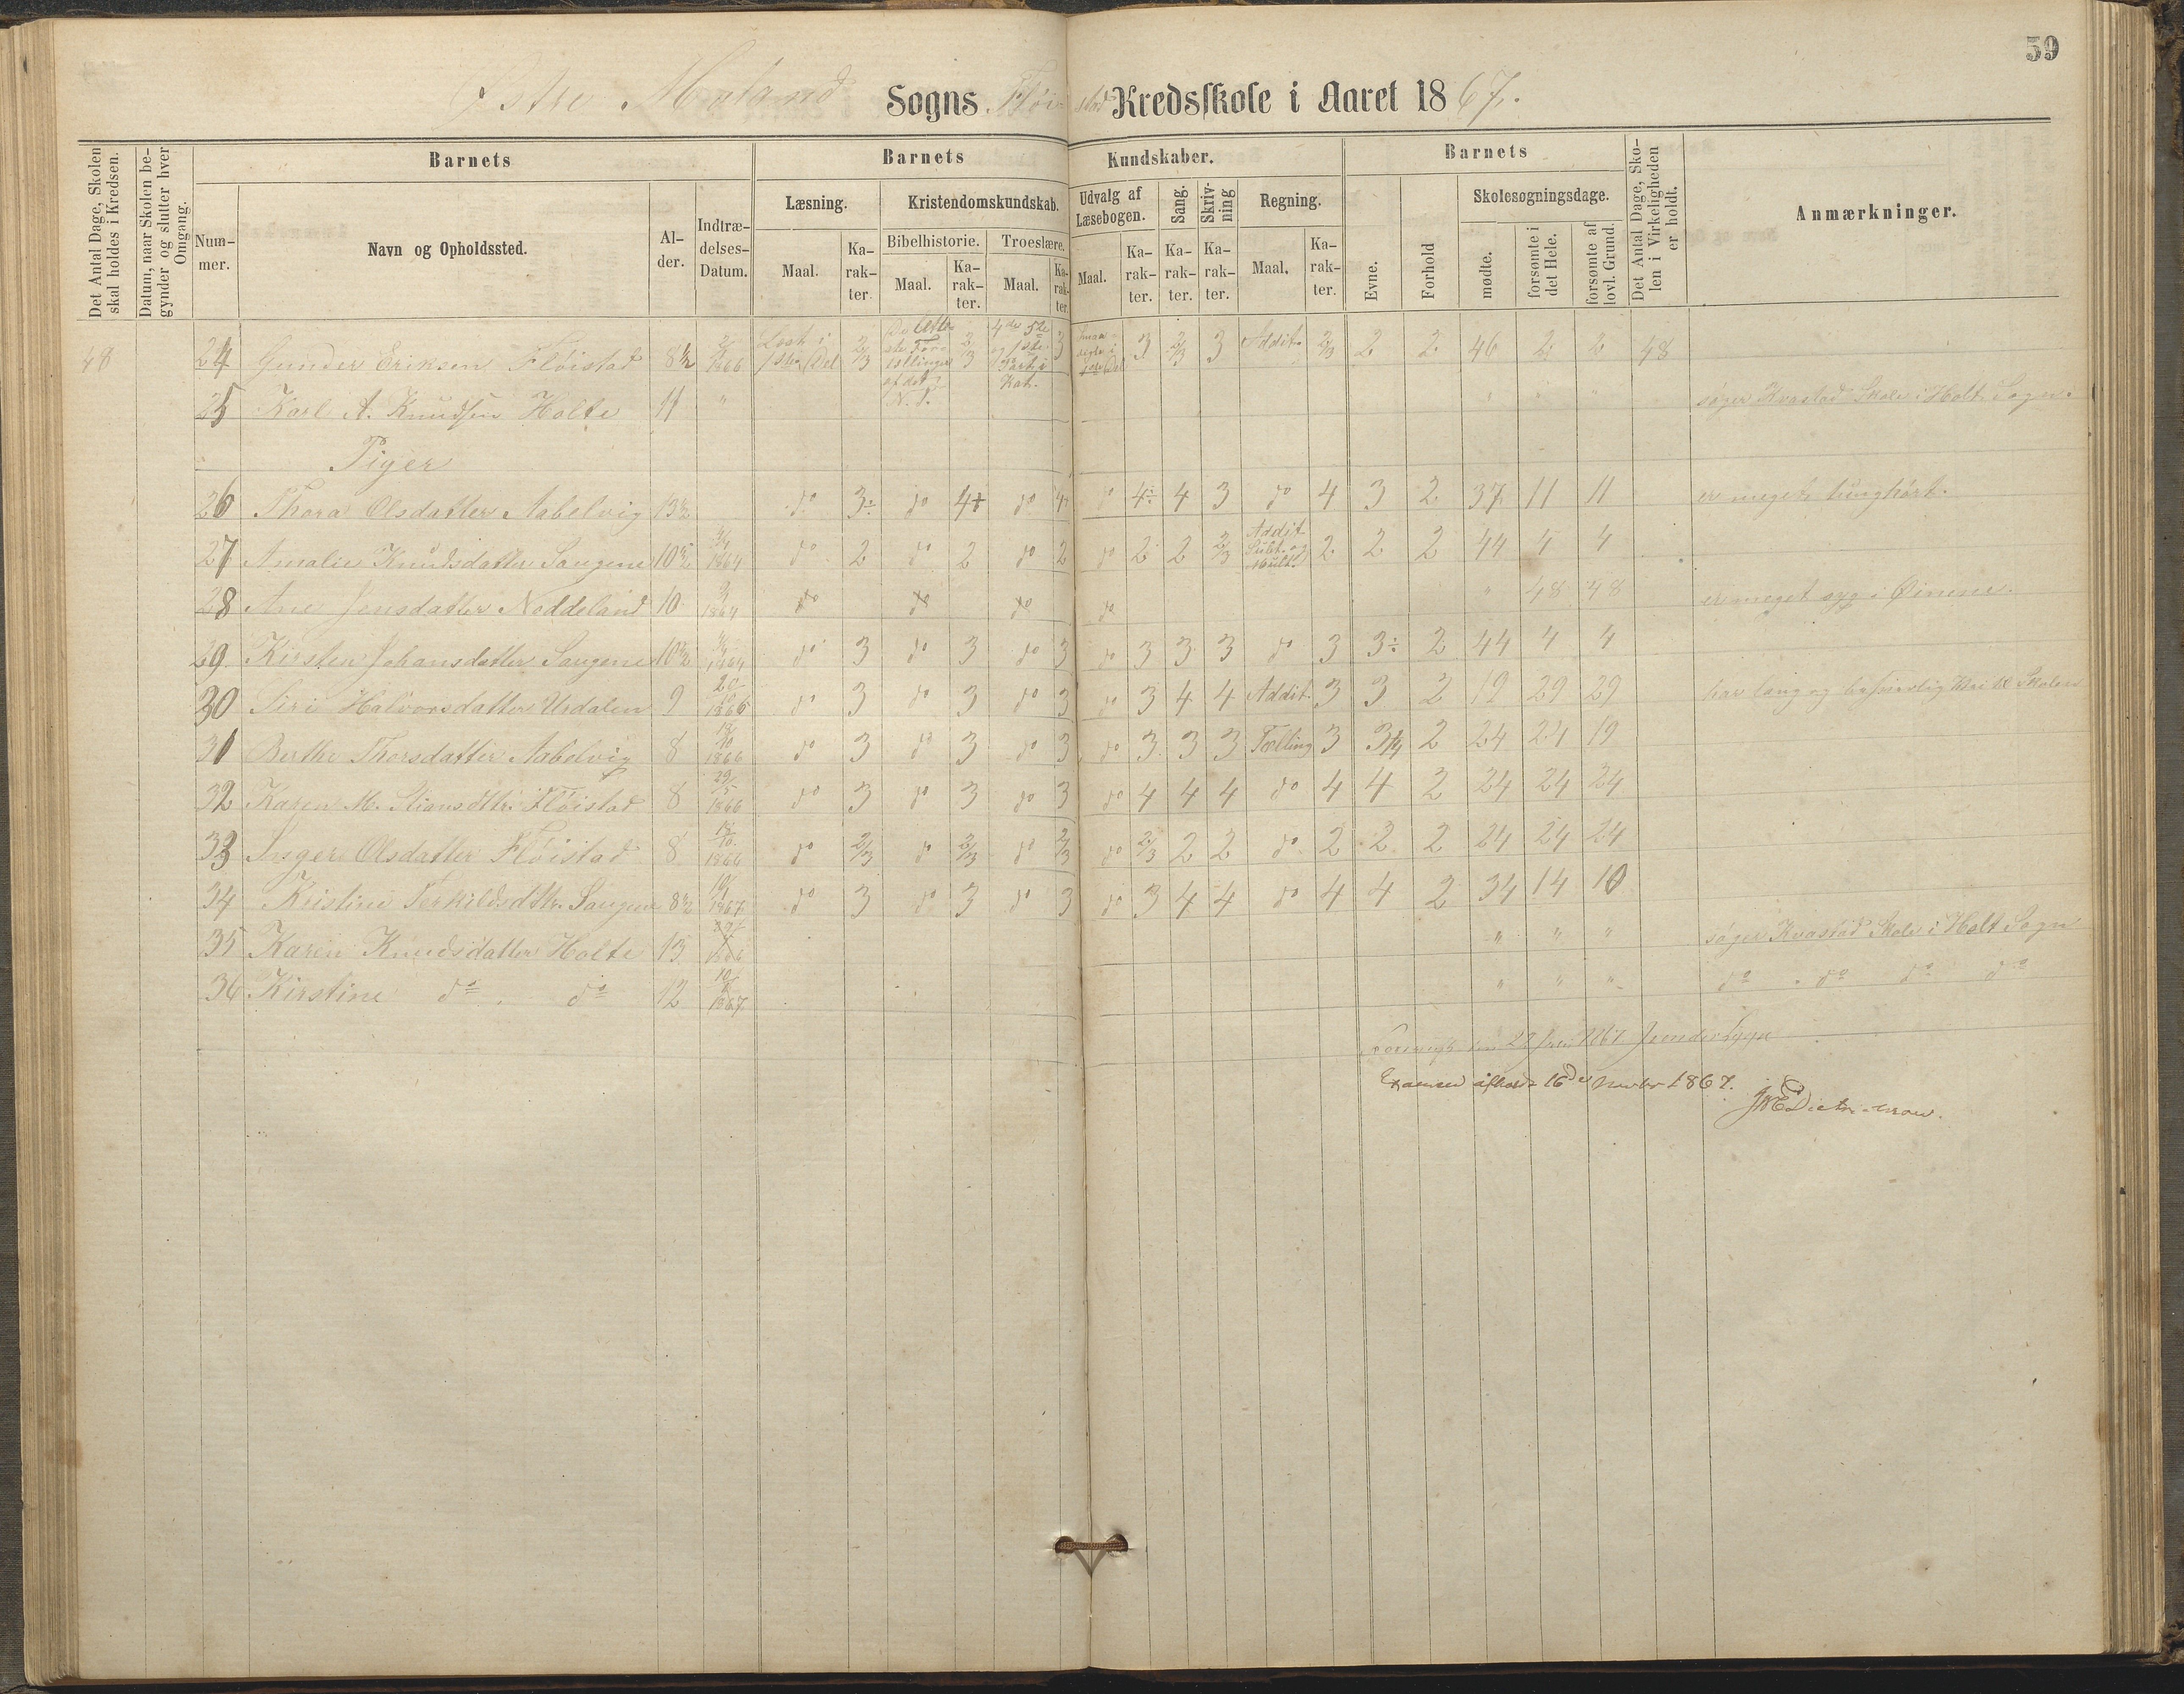 59
Østre Moland Sogns Fløistad Kredsskole i Aaret 1867.
Det Antal Dage, Skolen skal holdes i Kredsen.
Datum, naar Skolen begynder og slutter hver Omgang.
Barnets
Nummer.
Navn og Opholdssted.
Alder.
Indtrædelses-Datum.
Barnets Kundskaber.
Læsning.
Maal.
Karakter.
Kristendomskundskab.
Bibelhistorie.
Maal.
Karakter.
Troeslære.
Maal.
Karakter.
Udvalg af Læsebogen.
Maal.
Karakter.
Sang.
Karakter.
Skrivning
Karakter.
Regning.
Maal.
Karakter.
Barnets
Evne.
Forhold
Skolesøgningsdage.
mødte.
forsømte i det Hele.
forsømte af lovl. Grund.
Det Antal Dage, Skolen i Virkeligheden er holdt.
Anmærkninger.
48 24 Gunder Eriksen Fløistad 8½ 1866 Læst i 1ste Del 2/3 2/3 4de 5te og 1ste Part i Kat. 3 3 2/3 3 Addit. 2/3 2 2 46 2 2 48
25 Karl A. Knudsen Holte 11 " " " søger Kvastad Skole i Holt Sogn
Piger
26 Thora Olsdatter Aabelvig 13½ do 3÷ do 4+ do 4÷ do 4÷ 4 3 do 4 3 2 37 11 11 er meget tunghørt.
27 Amalie Knudsdatter Saugene 10½ 1864 do 2 do 2 do 2 do 2 2 2/3 Addit. Subt. og Mult. 2 2 2 44 4 4
28 Ane Jensdatter Noddeland 10 1864 do do do do " 48 48 er meget syg i Øinene.
29. Kirsten Johansdatter Saugene 10½ 1864 do 3 do 3 do 3 do 3 3 3 do 3 3÷ 2 44 4 4
30 Siri Halvorsdatter Urdalen 9 1866 do 3 do 3 do 3 do 3 4 4 Addit. 3 3 2 19 29 29 har lang og besværlig Vei til Skolen
31 Berthe Thorsdatter Aabelvig 8 18/10 1866 do 3 do 3 do 3 do 3 3 3 Tælling 3 3/4 2 24 24 19
32 Karen M. Stiansdtr. Fløistad 8 29/5 1866 do 3 do 3 do 3 do 4 4 4 do 4 4 2 24 24 24
33 Inger Olsdatter Fløistad 8 18/10 1866 do 2/3 do 2/3 do 2/3 do 2/3 2 2 do 2 2 2 24 24 24
34 Kristine Terkildsdtr. Saugene 8½ 1867 do 3 do 3 do 3 do 3 4 4 do 4 4 2 34 14 10
35 Karen Knudsdatter Holte 13 " " " søger Kvastad Skole i Holt Sogn
36 Kirstine do do 12 1867 " " " do do do do
Examen afholdt 16de Novbr 1867.